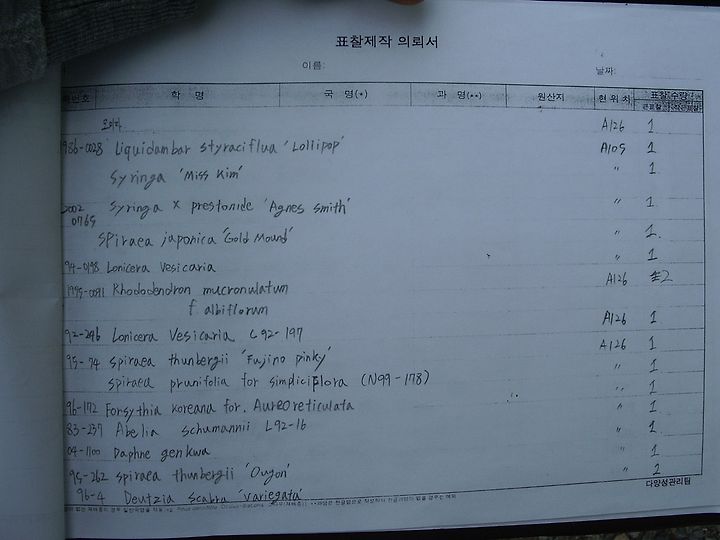 표찰제작 의뢰서
이름:
날짜:
학 명 국 명(*) 과 명(**) 원산지 현 위 치 표찰 수량
A126 1
1986-0028 Liquidambar styraciflua 'Lollipop' A105 1
Syringa 'Miss Kim' " 1
2002 0765 Syringa x prestonide 'Agnes Smith' " 1
Spiraea japonica 'Gold Mound' " 1
94-0198 Lonicera Vesicaria " 1
Rhododendron mucronulatum A126 2
f. albiflorum
92-246 Lonicera Vesicaria L92-197 A126 1
95-74 Spiraea thunbergii 'Fujino pinky' A126 1
Spiraea prunifolia for simpliciflora (N99-178) " 1
96-172 Forsythia koreana for. Aureoreticulata " 1
83-237 Abelia schumannii L92-16 " 1
04-1100 Daphne genkwa " 1
95-262 Spiraea thunbergii 'Ougon' " 1
96-4 Deutzia Scabra 'Variegata' " 2
다양성관리팀